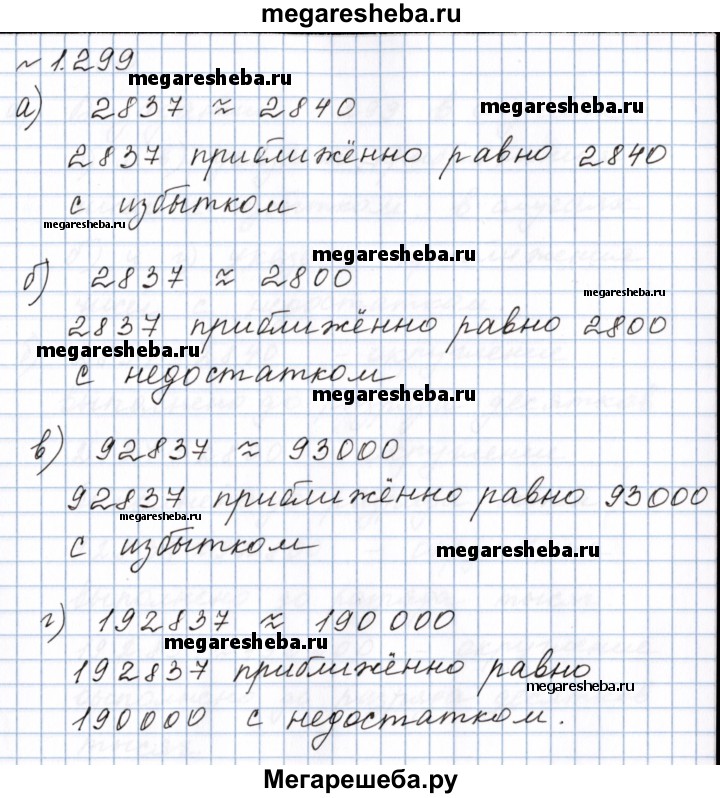 megaresheba.ru
№ 1.299
megaresheba.ru
а) 2837 ≈ 2840
megaresheba.ru
2837 приближённо равно 2840
с избытком
megaresheba.ru
megaresheba.ru
б) 2837 ≈ 2800
megaresheba.ru
2837 приближённо равно 2800
megaresheba.ru
с недостатком
megaresheba.ru
в) 92837 ≈ 93000
92837 приближённо равно 93000
megaresheba.ru
с избытком
megaresheba.ru
г) 192837 ≈ 190 000
megaresheba.ru
192837 приближённо равно
megaresheba.ru
190000 с недостатком.
Мегарешеба.ру